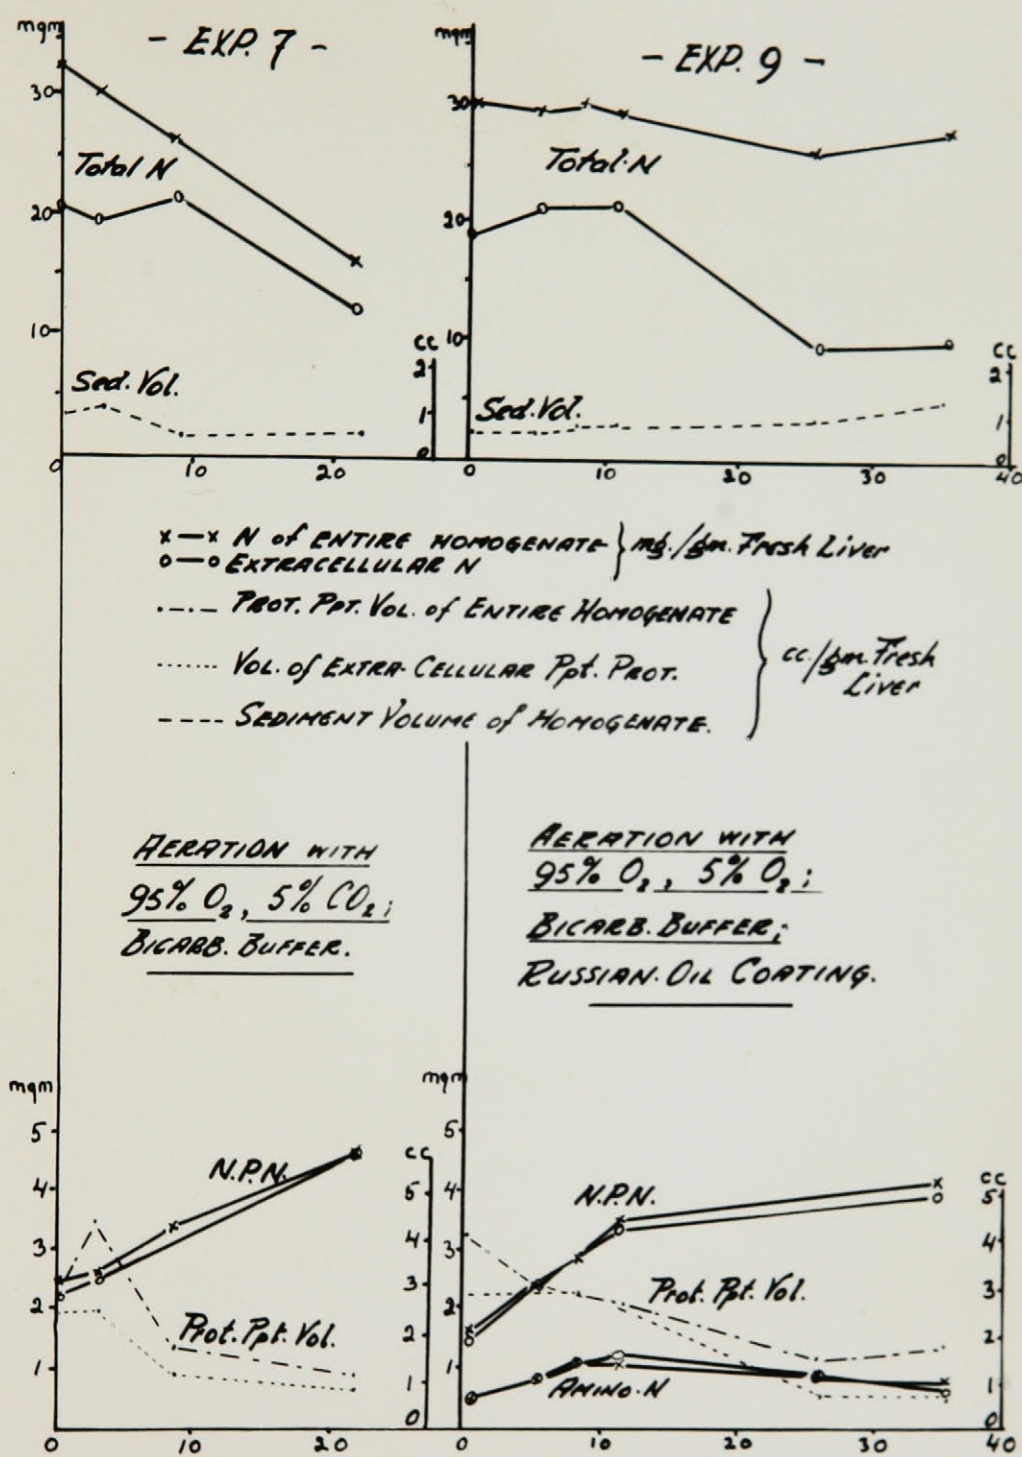 - EXP. 7 -
mgm
30
20
10
Total N
Sed. Vol.
cc
2
1
0
0 10 20
- EXP. 9 -
mgm
30
20
10
Total·N
Sed.Vol.
cc
2
1
0
0 10 20 30 40
x—x N of ENTIRE HOMOGENATE } mg./gm. Fresh Liver
o—o EXTRACELLULAR N
.-.-. PROT. PPT. VOL. of ENTIRE HOMOGENATE
...... VOL. of EXTRA-CELLULAR Ppt. PROT.
---- SEDIMENT VOLUME of HOMOGENATE.
cc./gm. Fresh
Liver
AERATION WITH
95% O₂, 5% CO₂;
BICARB. BUFFER.
AERATION WITH
95% O₂, 5% O₂;
BICARB. BUFFER;
RUSSIAN·OIL COATING.
mgm
5
4
3
2
1
N.P.N.
Prot. Ppt. Vol.
cc
5
4
3
2
1
0
0 10 20
mgm
5
4
3
2
1
N.P.N.
Prot. Ppt. Vol.
AMINO·N
cc
5
4
3
2
1
0
0 10 20 30 40